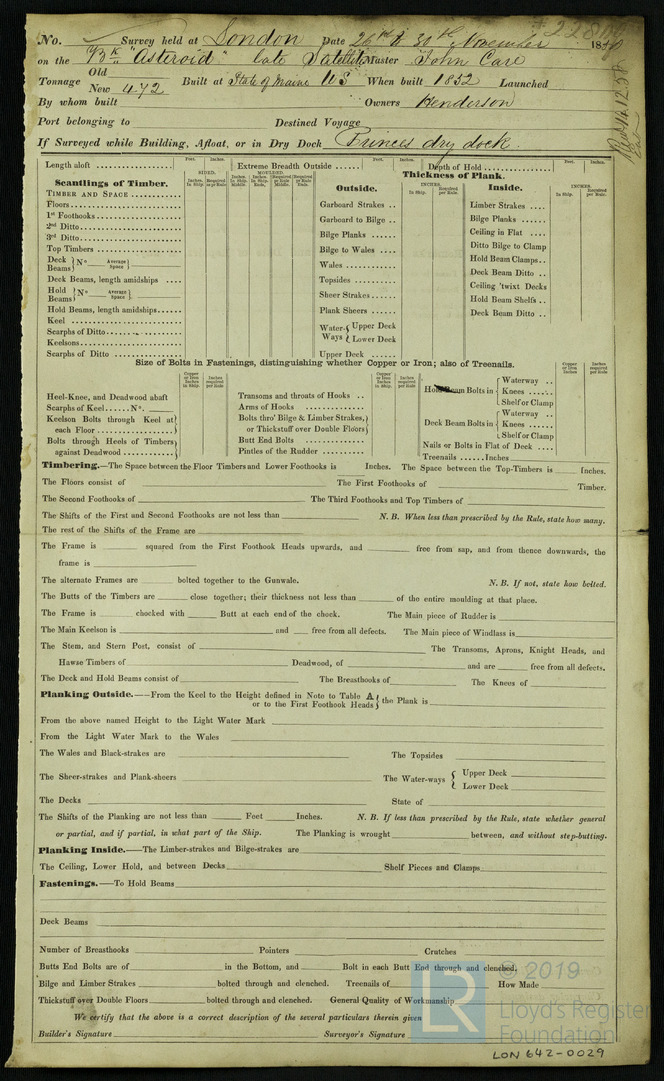 No. Survey held at London Date 26th & 30th November 18
on the Bk "Asteroid" late Satellite Master John Care
Tonnage Old
New 472 Built at State of Maine US When built 1852 Launched
By whom built Owners Henderson
Port belonging to Destined Voyage
If Surveyed while Building, Afloat, or in Dry Dock Princes dry dock.
Length aloft Feet. Inches. Extreme Breadth Outside Feet. Inches. Depth of Hold Feet. Inches.
Scantlings of Timber. SIDED. MOULDED. Thickness of Plank.
Inches. In Ship. Inches. Required per Rule
Outside. INCHES. In Ship. Required per Rule Inside. INCHES. In Ship. Required per Rule
TIMBER AND SPACE
Floors
1st Foothooks
2nd Ditto
3rd Ditto
Top Timbers
Deck Beams } No. Average Space }
Deck Beams, length amidships
Hold Beams } No. Average Space }
Hold Beams, length amidships
Keel
Scarphs of Ditto
Keelsons
Scarphs of Ditto
Garboard Strakes
Garboard to Bilge
Bilge Planks
Bilge to Wales
Wales
Topsides
Sheer Strakes
Plank Sheers
Water-Ways { Upper Deck
Lower Deck
Upper Deck
Limber Strakes
Bilge Planks
Ceiling in Flat
Ditto Bilge to Clamp
Hold Beam Clamps
Deck Beam Ditto
Ceiling 'twixt Decks
Hold Beam Shelfs
Deck Beam Ditto
Size of Bolts in Fastenings, distinguishing whether Copper or Iron; also of Treenails.
Copper or Iron Inches In Ship. Inches required per Rule
Heel-Knee, and Deadwood abaft
Scarphs of Keel No.
Keelson Bolts through Keel at each Floor
Bolts through Heels of Timbers against Deadwood
Transoms and throats of Hooks
Arms of Hooks
Bolts thro' Bilge & Limber Strakes, or Thickstuff over Double Floors
Butt End Bolts
Pintles of the Rudder
Hold Beam Bolts in { Waterway
Knees
Shelf or Clamp
Deck Beam Bolts in { Waterway
Knees
Shelf or Clamp
Nails or Bolts in Flat of Deck
Treenails Inches
Timbering.—The Space between the Floor Timbers and Lower Foothooks is Inches. The Space between the Top-Timbers is Inches.
The Floors consist of The First Foothooks of Timber.
The Second Foothooks of The Third Foothooks and Top Timbers of
The Shifts of the First and Second Foothooks are not less than N. B. When less than prescribed by the Rule, state how many.
The rest of the Shifts of the Frame are
The Frame is squared from the First Foothook Heads upwards, and free from sap, and from thence downwards, the
frame is
The alternate Frames are bolted together to the Gunwale. N. B. If not, state how bolted.
The Butts of the Timbers are close together; their thickness not less than of the entire moulding at that place.
The Frame is chocked with Butt at each end of the chock. The Main piece of Rudder is
The Main Keelson is and free from all defects. The Main piece of Windlass is
The Stem, and Stern Post, consist of The Transoms, Aprons, Knight Heads, and
Hawse Timbers of Deadwood, of and are free from all defects.
The Deck and Hold Beams consist of The Breasthooks of The Knees of
Planking Outside.—From the Keel to the Height defined in Note to Table A or to the First Foothook Heads } the Plank is
From the above named Height to the Light Water Mark
From the Light Water Mark to the Wales
The Wales and Black-strakes are The Topsides
The Sheer-strakes and Plank-sheers The Water-ways { Upper Deck
Lower Deck
The Decks State of
The Shifts of the Planking are not less than Feet Inches. N. B. If less than prescribed by the Rule, state whether general
or partial, and if partial, in what part of the Ship. The Planking is wrought between, and without step-butting.
Planking Inside.—The Limber-strakes and Bilge-strakes are
The Ceiling, Lower Hold, and between Decks Shelf Pieces and Clamps
Fastenings.—To Hold Beams
Deck Beams
Number of Breasthooks Pointers Crutches
Butts End Bolts are of in the Bottom, and Bolt in each Butt End through and clenched.
Bilge and Limber Strakes bolted through and clenched. Treenails of How Made
Thickstuff over Double Floors bolted through and clenched. General Quality of Workmanship
We certify that the above is a correct description of the several particulars therein given
Builder's Signature Surveyor's Signature
© 2019
LR Lloyd's Register
Foundation
LON 642-0029